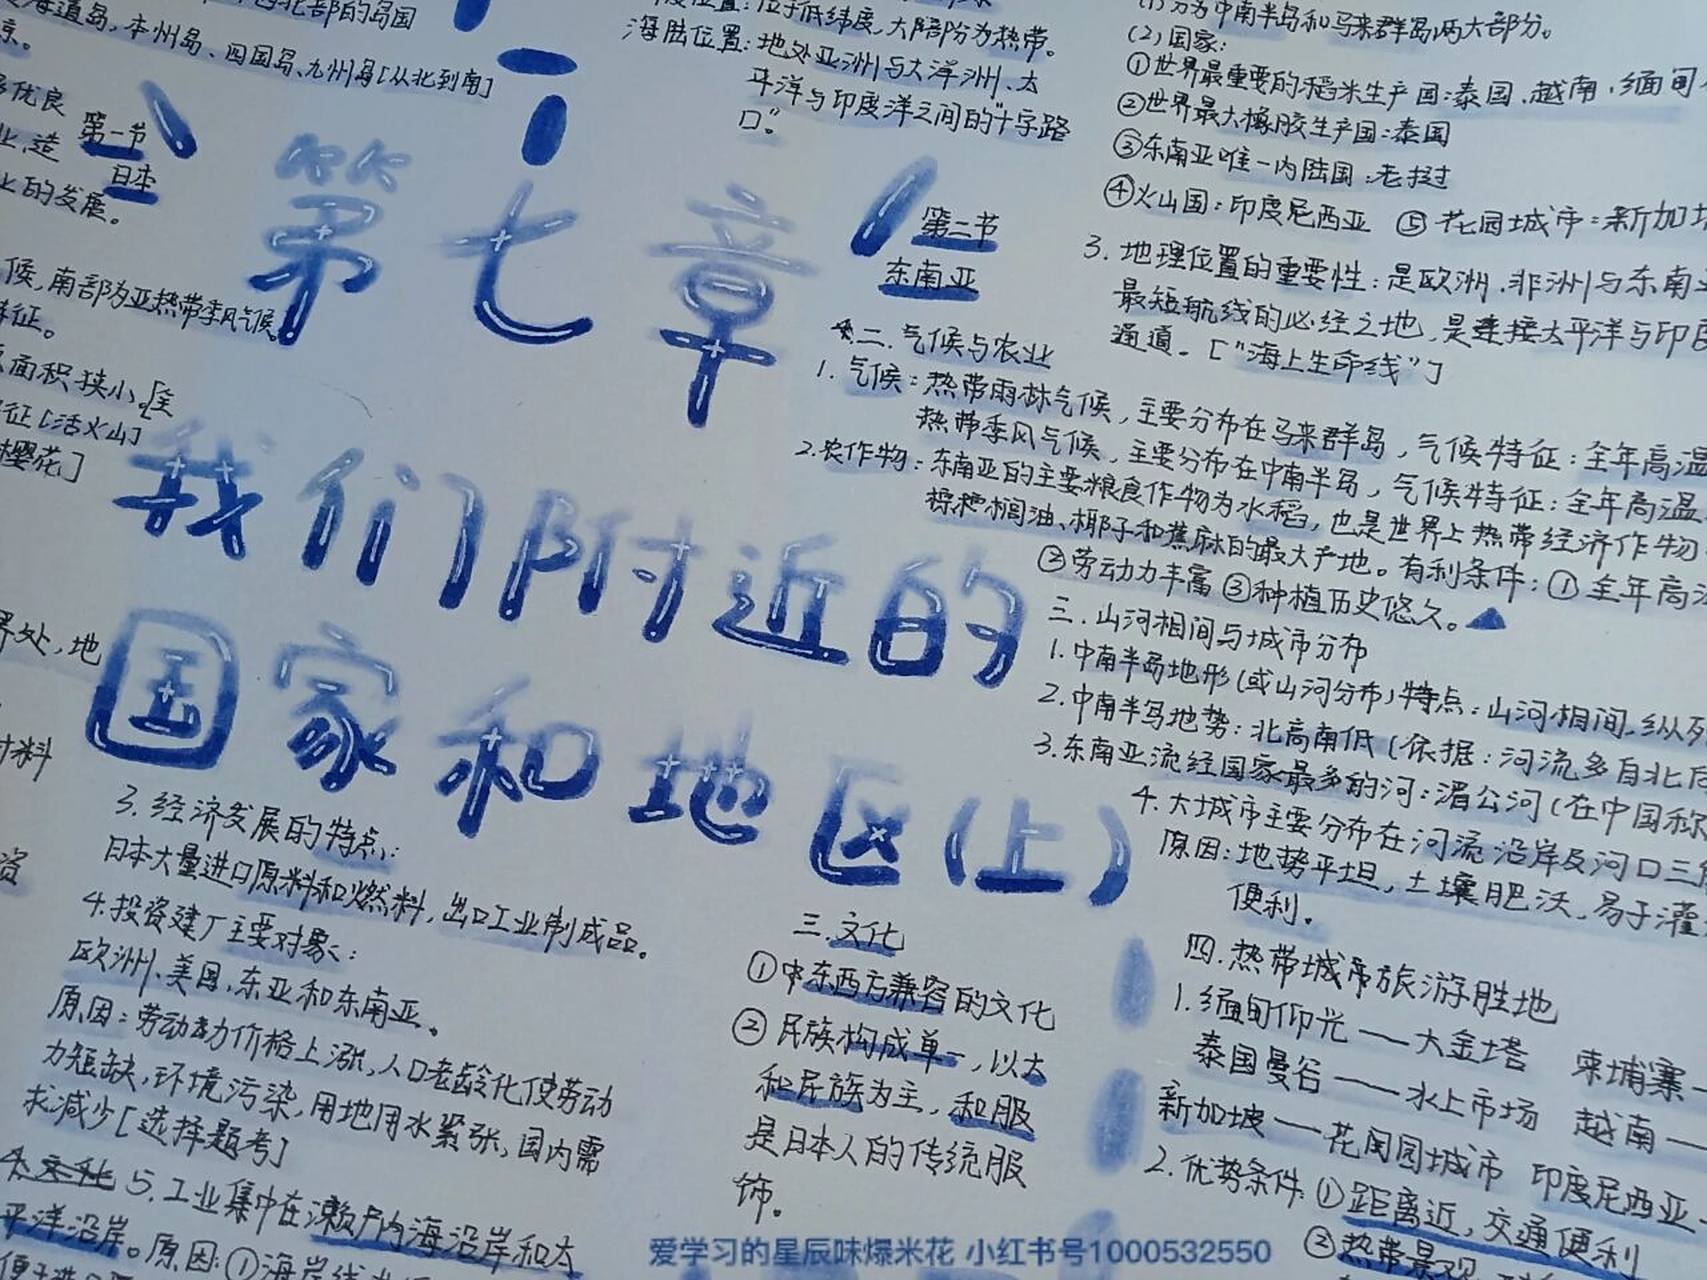 海道岛、本州岛、四国岛、九州岛[从北到南]
京。
优良
第一节
业,造
日本
的发展。
候,南部为亚热带季风气候。
特征。
面积狭小。
征[活火山]
樱花]
界处,地
材料
资
第七章
我们附近的
国家和地区(上)
3.经济发展的特点:
日本大量进口原料和燃料,出口工业制成品。
4.投资建厂主要对象:
欧洲、美国,东亚和东南亚。
原因:劳动力价格上涨,人口老龄化使劳动
力短缺,环境污染,用地用水紧张,国内需
求减少[选择题考]
5.工业集中在濑户内海沿岸和太
平洋沿岸。原因:①海岸线
三.文化
①东西方兼容的文化
②民族构成单一,以大
和民族为主,和服
是日本人的传统服
饰。
位置:位于低纬度,大部分为热带。
海陆位置:地处亚洲与大洋洲、太
平洋与印度洋之间的"十字路
口"。
第二节
东南亚
(1)分为中南半岛和马来群岛两大部分。
(2)国家:
①世界最重要的稻米生产国:泰国、越南、缅甸
②世界最大橡胶生产国:泰国
③东南亚唯一内陆国:老挝
④火山国:印度尼西亚 ⑤花园城市:新加坡
3.地理位置的重要性:是欧洲、非洲与东南
最短航线的必经之地,是连接太平洋与印度
通道。["海上生命线"]
☆二.气候与农业
1.气候:热带雨林气候,主要分布在马来群岛,气候特征:全年高温
热带季风气候,主要分布在中南半岛,气候特征:全年高温
2.农作物:东南亚的主要粮食作物为水稻,也是世界上热带经济作物
棕榈油、椰子和蕉麻的最大产地。有利条件:①全年高温
②劳动力丰富③种植历史悠久。
三.山河相间与城市分布
1.中南半岛地形(或山河分布)特点:山河相间,纵列
2.中南半岛地势:北高南低(依据:河流多自北向
3.东南亚流经国家最多的河:湄公河(在中国称
4.大城市主要分布在河流沿岸及河口三角
原因:地势平坦,土壤肥沃,易于灌
便利。
四.热带城市旅游胜地
1.缅甸仰光——大金塔 柬埔寨—
泰国曼谷——水上市场 越南—
新加坡——花园城市 印度尼西亚
2.优势条件:①距离近,交通便利
②热带景观
爱学习的星辰味爆米花 小红书号1000532550